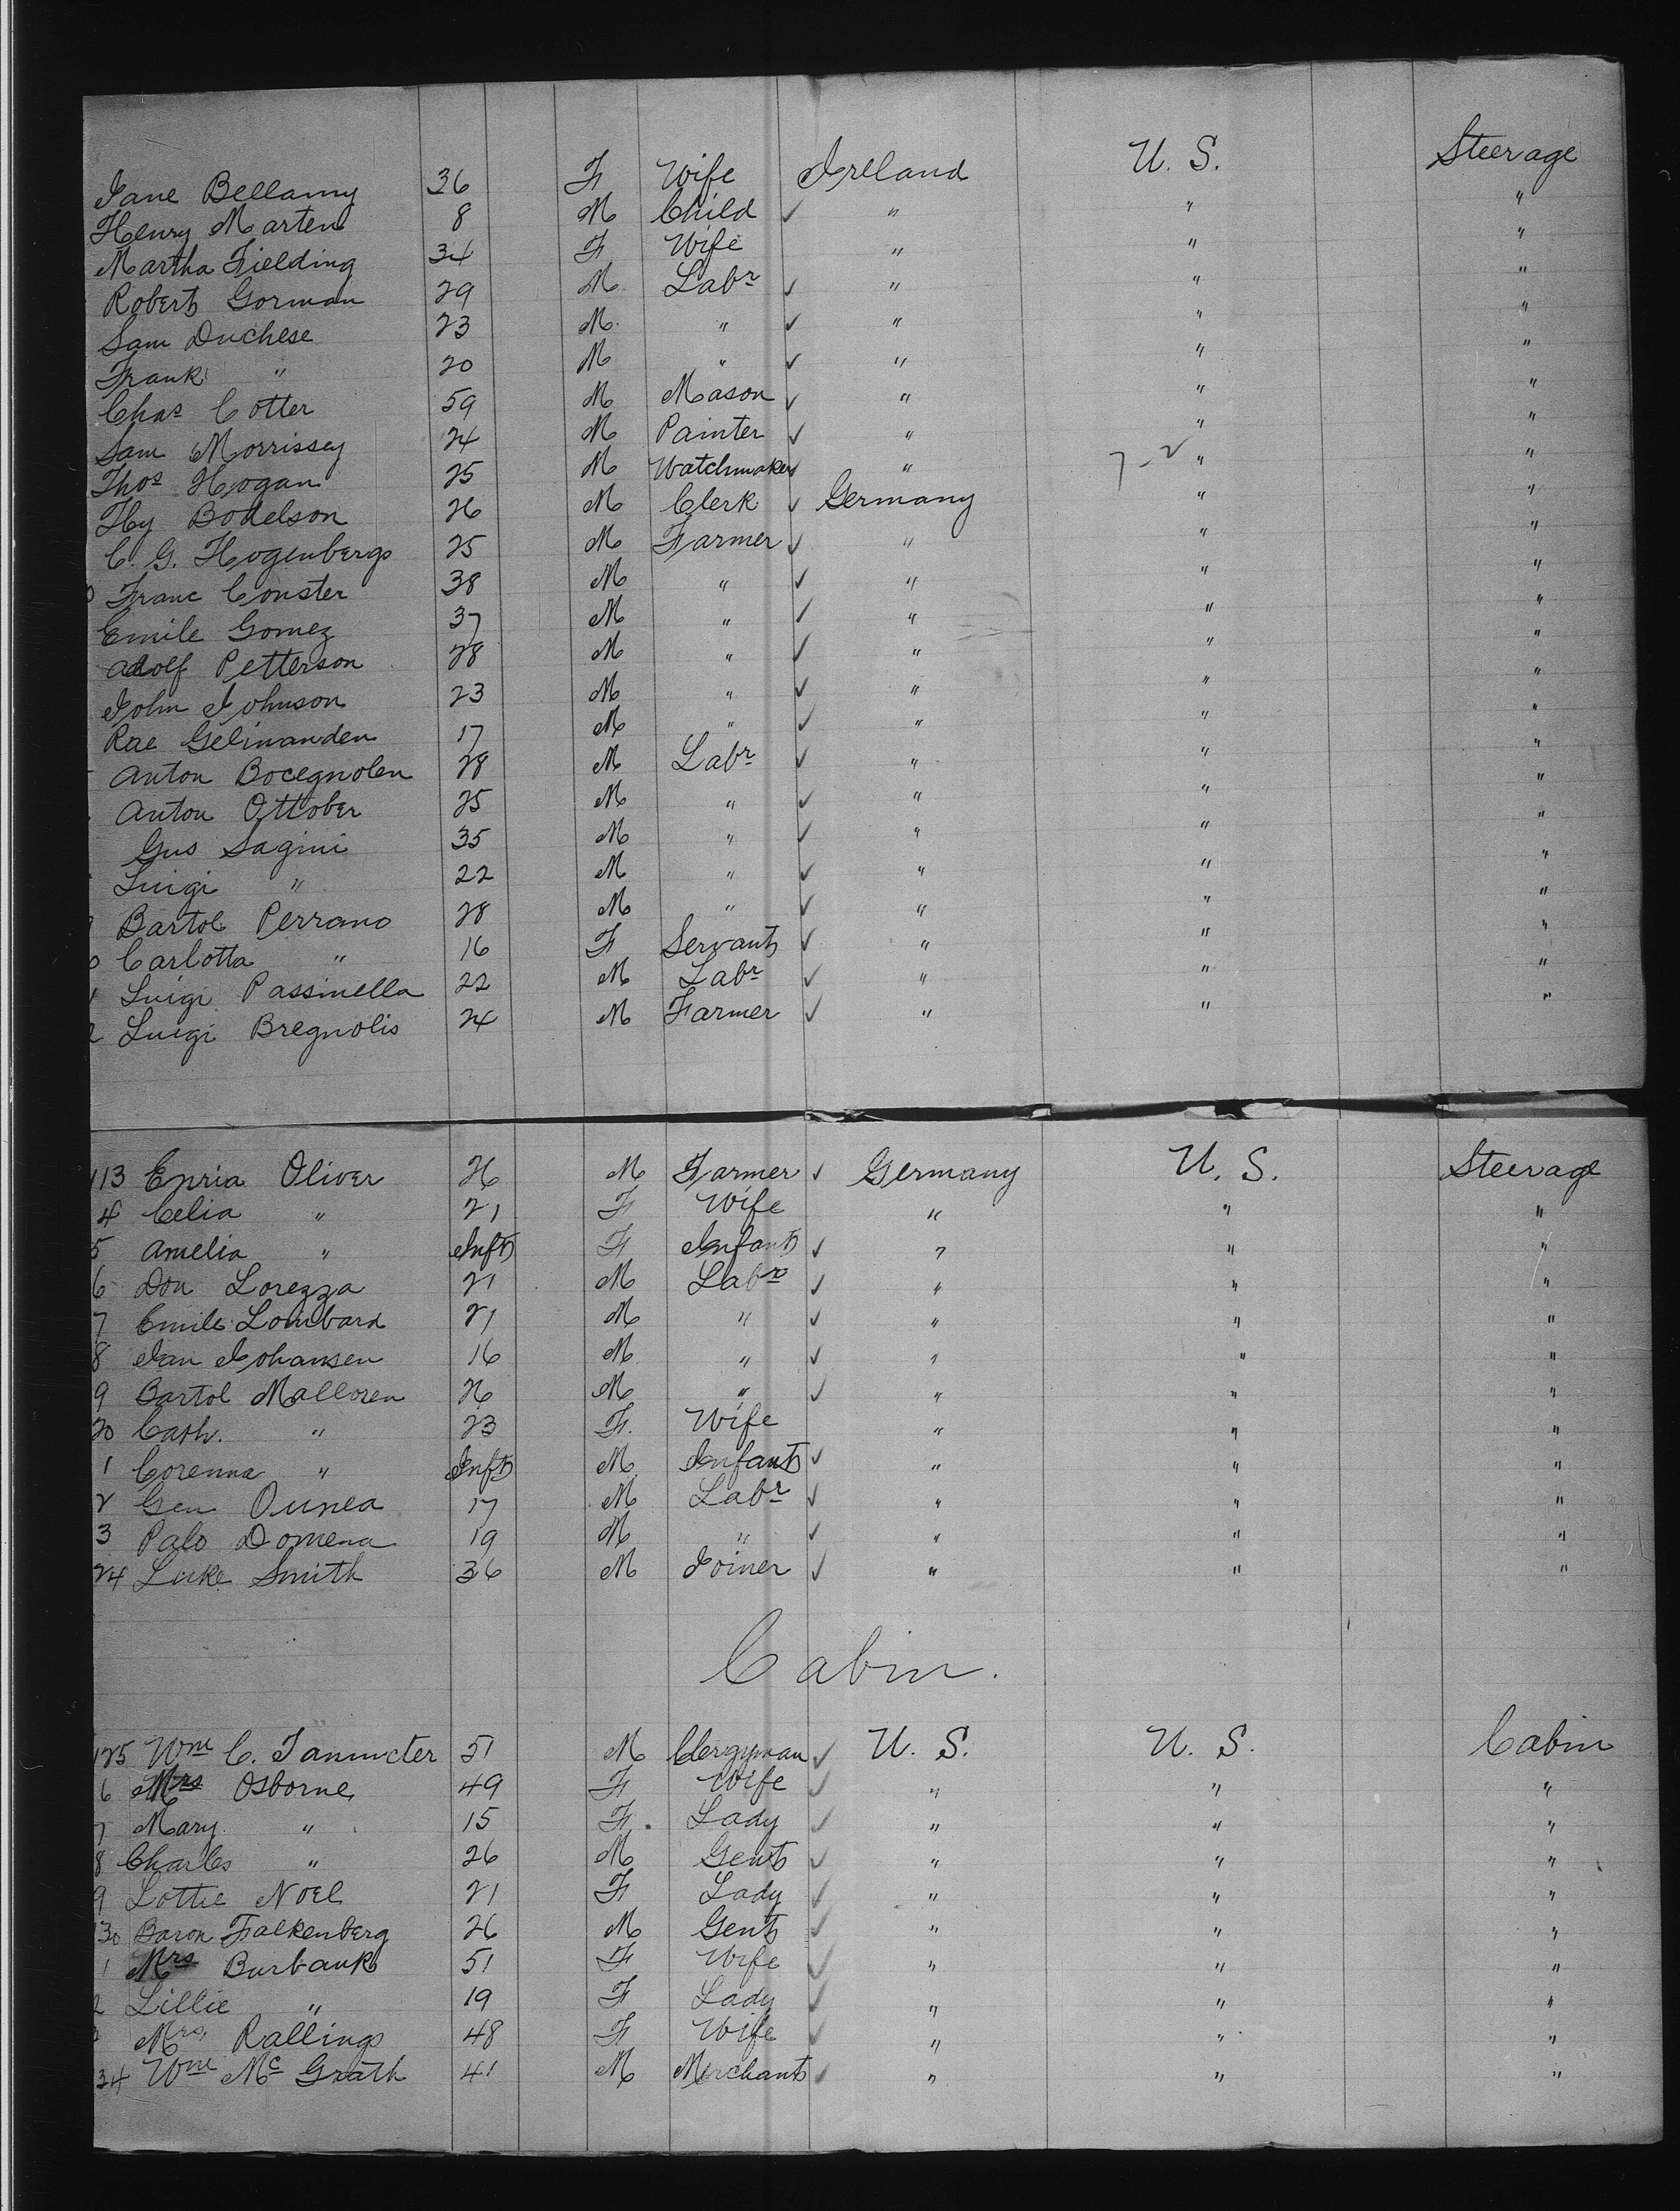 Jane Bellamy 36 F Wife Ireland U. S. Steerage
Henry Marten 8 M Child ✓ " " "
Martha Fielding 34 F Wife " " "
Robert Gorman 29 M Labr ✓ " " "
Sam Duchese 23 M " ✓ " " "
Frank " 20 M " ✓ " " "
Chas Cotter 59 M Mason ✓ " " "
Sam Morrissey 24 M Painter ✓ " " "
Thos Hogan 25 M Watchmaker ✓ " " "
Hy Bodelson 26 M Clerk ✓ Germany " "
C. G. Hogenberg 25 M Farmer ✓ " " "
Franc Conster 38 M " ✓ " " "
Emile Gomez 37 M " ✓ " " "
Adolf Petterson 28 M " ✓ " " "
John Johnson 23 M " ✓ " " "
Rae Gelinanden 17 M " ✓ " " "
Anton Bocegnolen 28 M Labr ✓ " " "
Anton Ottober 25 M " ✓ " " "
Gus Sagini 35 M " ✓ " " "
Luigi " 22 M " ✓ " " "
Bartol Perrano 28 M " ✓ " " "
Carlotta " 16 F Servant ✓ " " "
Luigi Passinella 22 M Labr ✓ " " "
Luigi Bregnolis 24 M Farmer ✓ " " "
113 Enria Oliver 26 M Farmer ✓ Germany U. S. Steerage
4 Celia " 21 F Wife " " "
5 Amelia " Inft F Infant ✓ " " "
6 Don Lorezza 21 M Labr ✓ " " "
7 Emile Lombard 21 M " ✓ " " "
8 Jan Johansen 16 M " ✓ " " "
9 Bartol Malloren 26 M " ✓ " " "
20 Cath. " 23 F. Wife " " "
1 Corenna " Inft M Infant ✓ " " "
2 Gen Ounea 17 M Labr ✓ " " "
3 Palo Domena 19 M " ✓ " " "
24 Luke Smith 36 M Joiner ✓ " " "
Cabin.
125 Wm C. 51 M Clergyman ✓ U. S. U. S. Cabin
6 Mrs Osborne 49 F Wife ✓ " " "
7 Mary " 15 F. Lady ✓ " " "
8 Charles " 26 M Gent ✓ " " "
9 Lottie Noel 21 F Lady ✓ " " "
130 Baron Falkenberg 26 M Gent ✓ " " "
1 Mrs Burbank 51 F Wife ✓ " " "
2 Lillie " 19 F Lady ✓ " " "
Mrs Rallings 48 F Wife ✓ " " "
34 Wm Mc Grath 41 M Merchant ✓ " " "